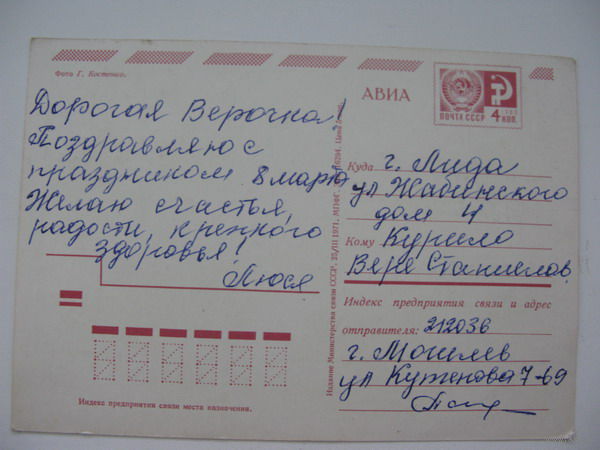 Фото Г. Костенко.
АВИА
ПОЧТА СССР
4 КОП.
Дорогая Верочка!
Поздравляю с
праздником 8 марта
Желаю счастья,
радости, крепкого
здоровья!
Люся
Куда г. Лида
ул
дом 4
Кому Курило
Вере Станислав.
Индекс предприятия связи и адрес
отправителя: 212036
г. Могилев
ул 7-69
Издание Министерства связи СССР. 25/III 1971.
Индекс предприятия связи места назначения.